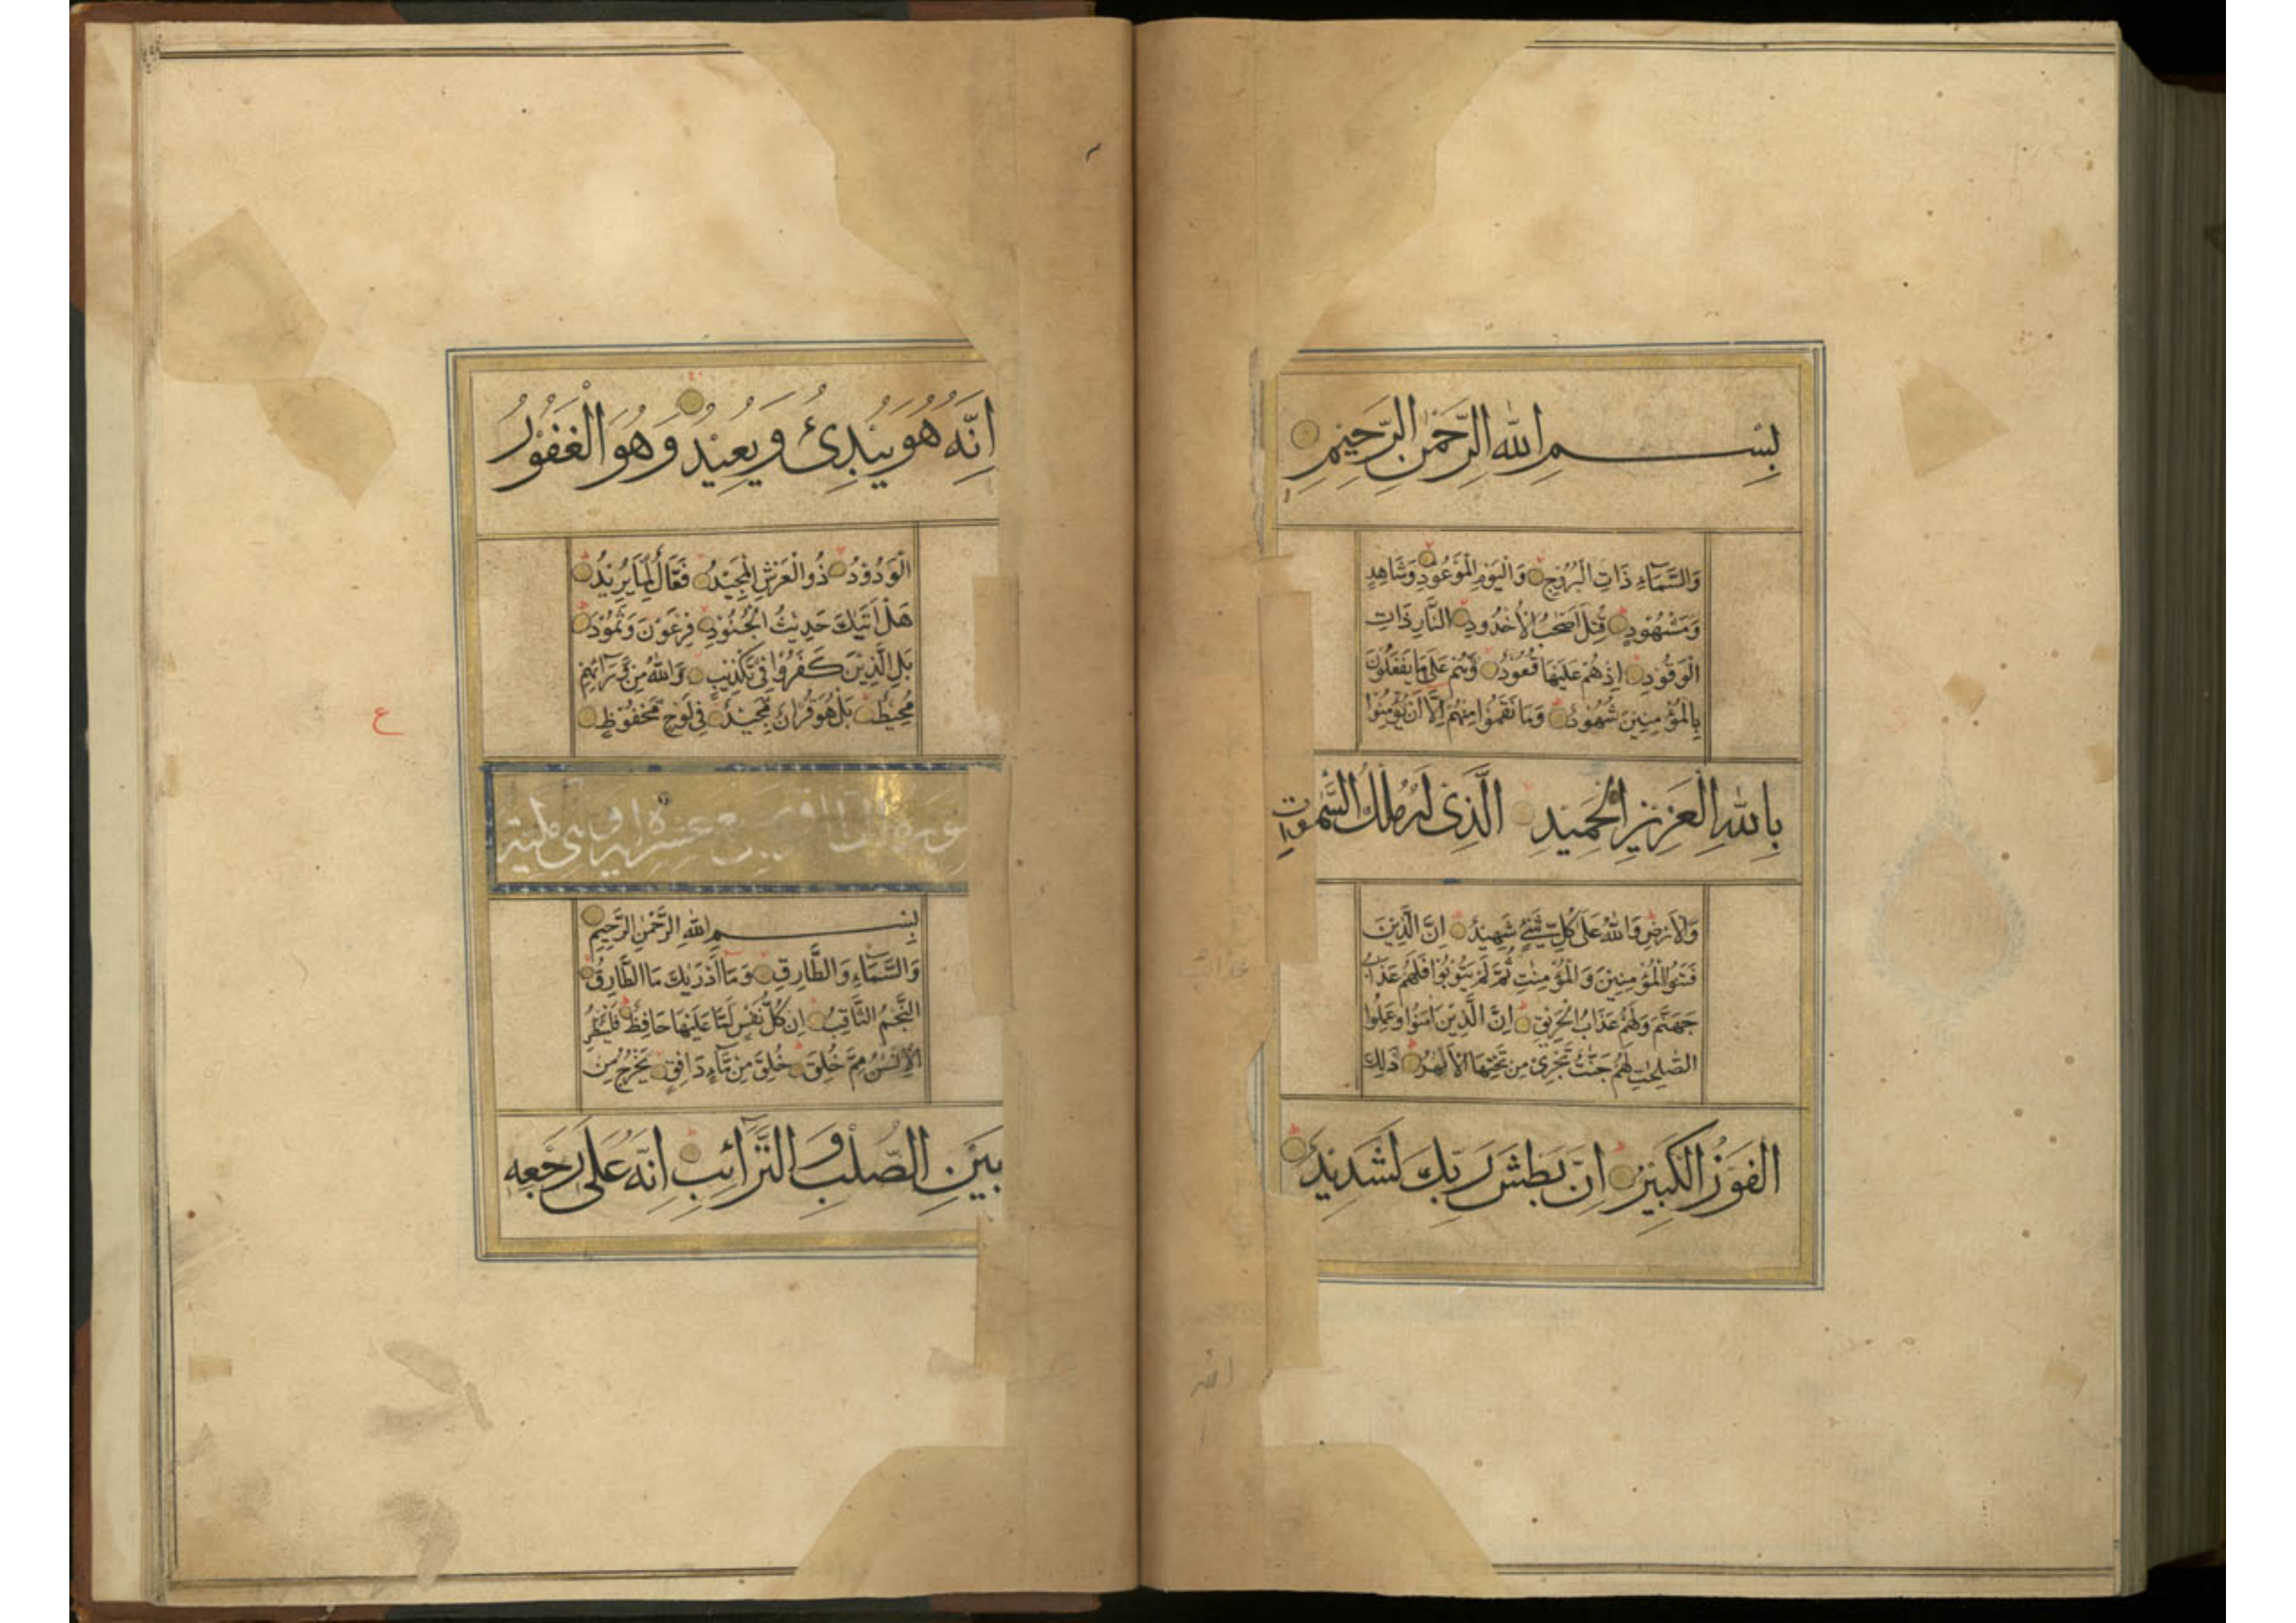 بِسْمِ اللهِ الرَّحْمٰنِ الرَّحِيمِ
وَالسَّمَآءِ ذَاتِ الْبُرُوْجِ وَالْيَوْمِ الْمَوْعُوْدِ وَشَاهِدٍ
وَمَشْهُوْدٍ قُتِلَ اَصْحٰبُ الْاُخْدُوْدِ النَّارِ ذَاتِ
الْوَقُوْدِ اِذْ هُمْ عَلَيْهَا قُعُوْدٌ وَهُمْ عَلٰى مَا يَفْعَلُوْنَ
بِالْمُؤْمِنِيْنَ شُهُوْدٌ وَمَا نَقَمُوْا مِنْهُمْ اِلَّا اَنْ يُؤْمِنُوْا
بِاللهِ الْعَزِيْزِ الْحَمِيْدِ الَّذِىْ لَهُ مُلْكُ السَّمٰوٰتِ
وَالْاَرْضِ وَاللهُ عَلٰى كُلِّ شَىْءٍ شَهِيْدٌ اِنَّ الَّذِيْنَ
فَتَنُوا الْمُؤْمِنِيْنَ وَالْمُؤْمِنٰتِ ثُمَّ لَمْ يَتُوْبُوْا فَلَهُمْ عَذَابُ
جَهَنَّمَ وَلَهُمْ عَذَابُ الْحَرِيْقِ اِنَّ الَّذِيْنَ اٰمَنُوْا وَعَمِلُوا
الصّٰلِحٰتِ لَهُمْ جَنّٰتٌ تَجْرِىْ مِنْ تَحْتِهَا الْاَنْهٰرُ ذٰلِكَ
الْفَوْزُ الْكَبِيْرُ اِنَّ بَطْشَ رَبِّكَ لَشَدِيْدٌ
اِنَّهُ هُوَ يُبْدِئُ وَيُعِيْدُ وَهُوَ الْغَفُوْرُ
الْوَدُوْدُ ذُو الْعَرْشِ الْمَجِيْدُ فَعَّالٌ لِمَا يُرِيْدُ
هَلْ اَتٰيكَ حَدِيْثُ الْجُنُوْدِ فِرْعَوْنَ وَثَمُوْدَ
بَلِ الَّذِيْنَ كَفَرُوْا فِىْ تَكْذِيْبٍ وَاللهُ مِنْ وَرَآئِهِمْ
مُحِيْطٌ بَلْ هُوَ قُرْاٰنٌ مَجِيْدٌ فِىْ لَوْحٍ مَحْفُوْظٍ
ع
بِسْمِ اللهِ الرَّحْمٰنِ الرَّحِيْمِ
وَالسَّمَآءِ وَالطَّارِقِ وَمَا اَدْرٰيكَ مَا الطَّارِقُ
النَّجْمُ الثَّاقِبُ اِنْ كُلُّ نَفْسٍ لَمَّا عَلَيْهَا حَافِظٌ فَلْيَنْظُرِ
الْاِنْسٰنُ مِمَّ خُلِقَ خُلِقَ مِنْ مَآءٍ دَافِقٍ يَخْرُجُ مِنْ
بَيْنِ الصُّلْبِ وَالتَّرَآئِبِ اِنَّهُ عَلٰى رَجْعِهِ